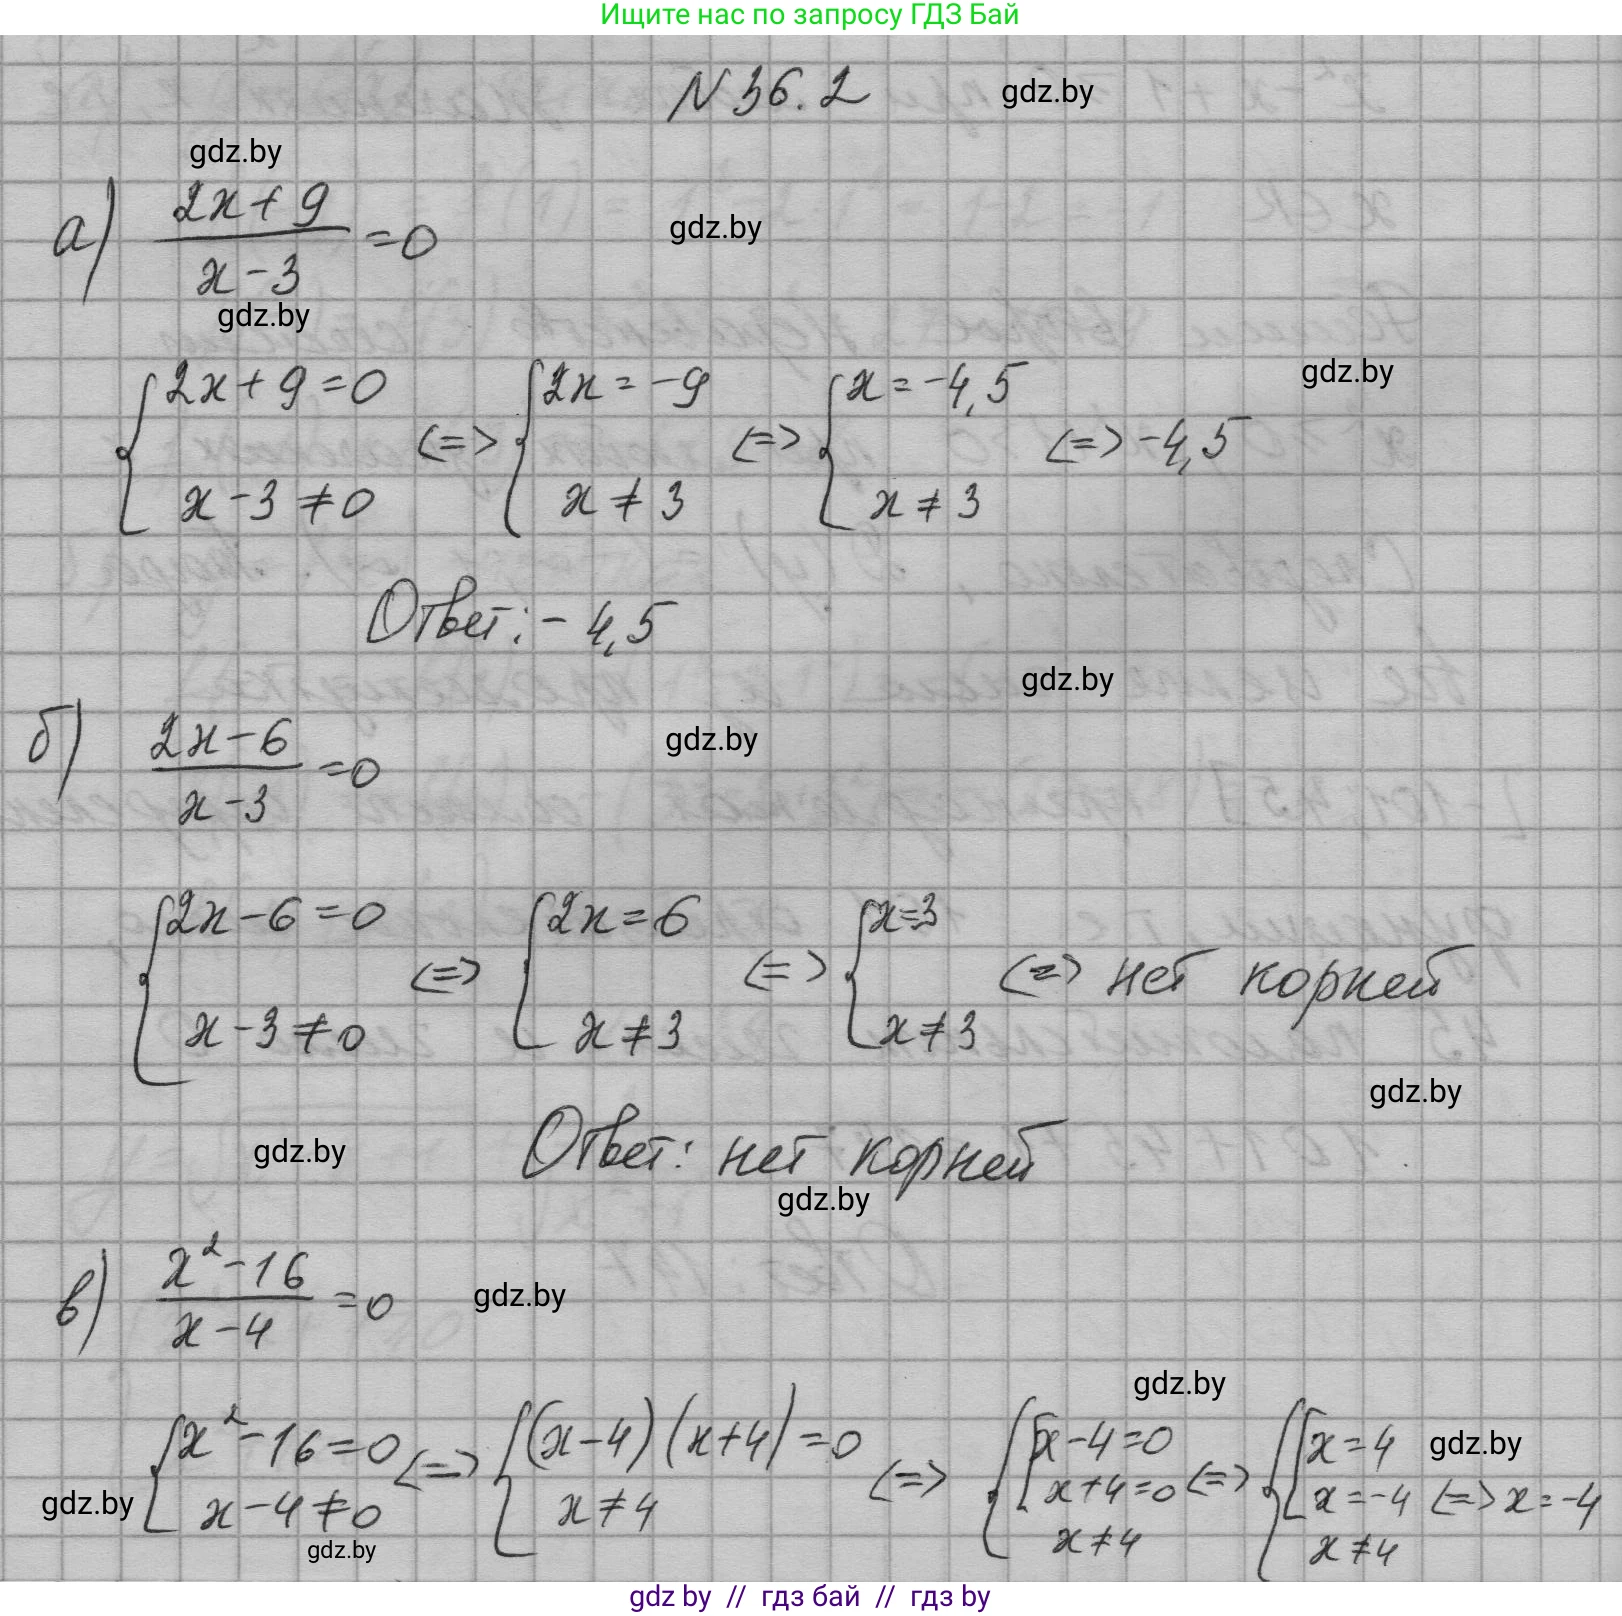 Ищите нас по запросу ГДЗ Бай
N 36.2
gdz.by
gdz.by
а) (2x+9)/(x-3) = 0
gdz.by
gdz.by
gdz.by
{2x+9=0, x-3≠0 <=> {2x=-9, x≠3 <=> {x=-4,5, x≠3 <=> -4,5
Ответ: -4,5
gdz.by
б) (2x-6)/(x-3) = 0
gdz.by
{2x-6=0, x-3≠0 <=> {2x=6, x≠3 <=> {x=3, x≠3 <=> нет корней
gdz.by
gdz.by
Ответ: нет корней
gdz.by
в) (x²-16)/(x-4) = 0
gdz.by
gdz.by
{x²-16=0, x-4≠0 <=> {(x-4)(x+4)=0, x≠4 <=> {[x-4=0, x+4=0, x≠4 <=> {[x=4, x=-4, x≠4 <=> x=-4
gdz.by
gdz.by
gdz.by
gdz by // гдз бай // гдз by